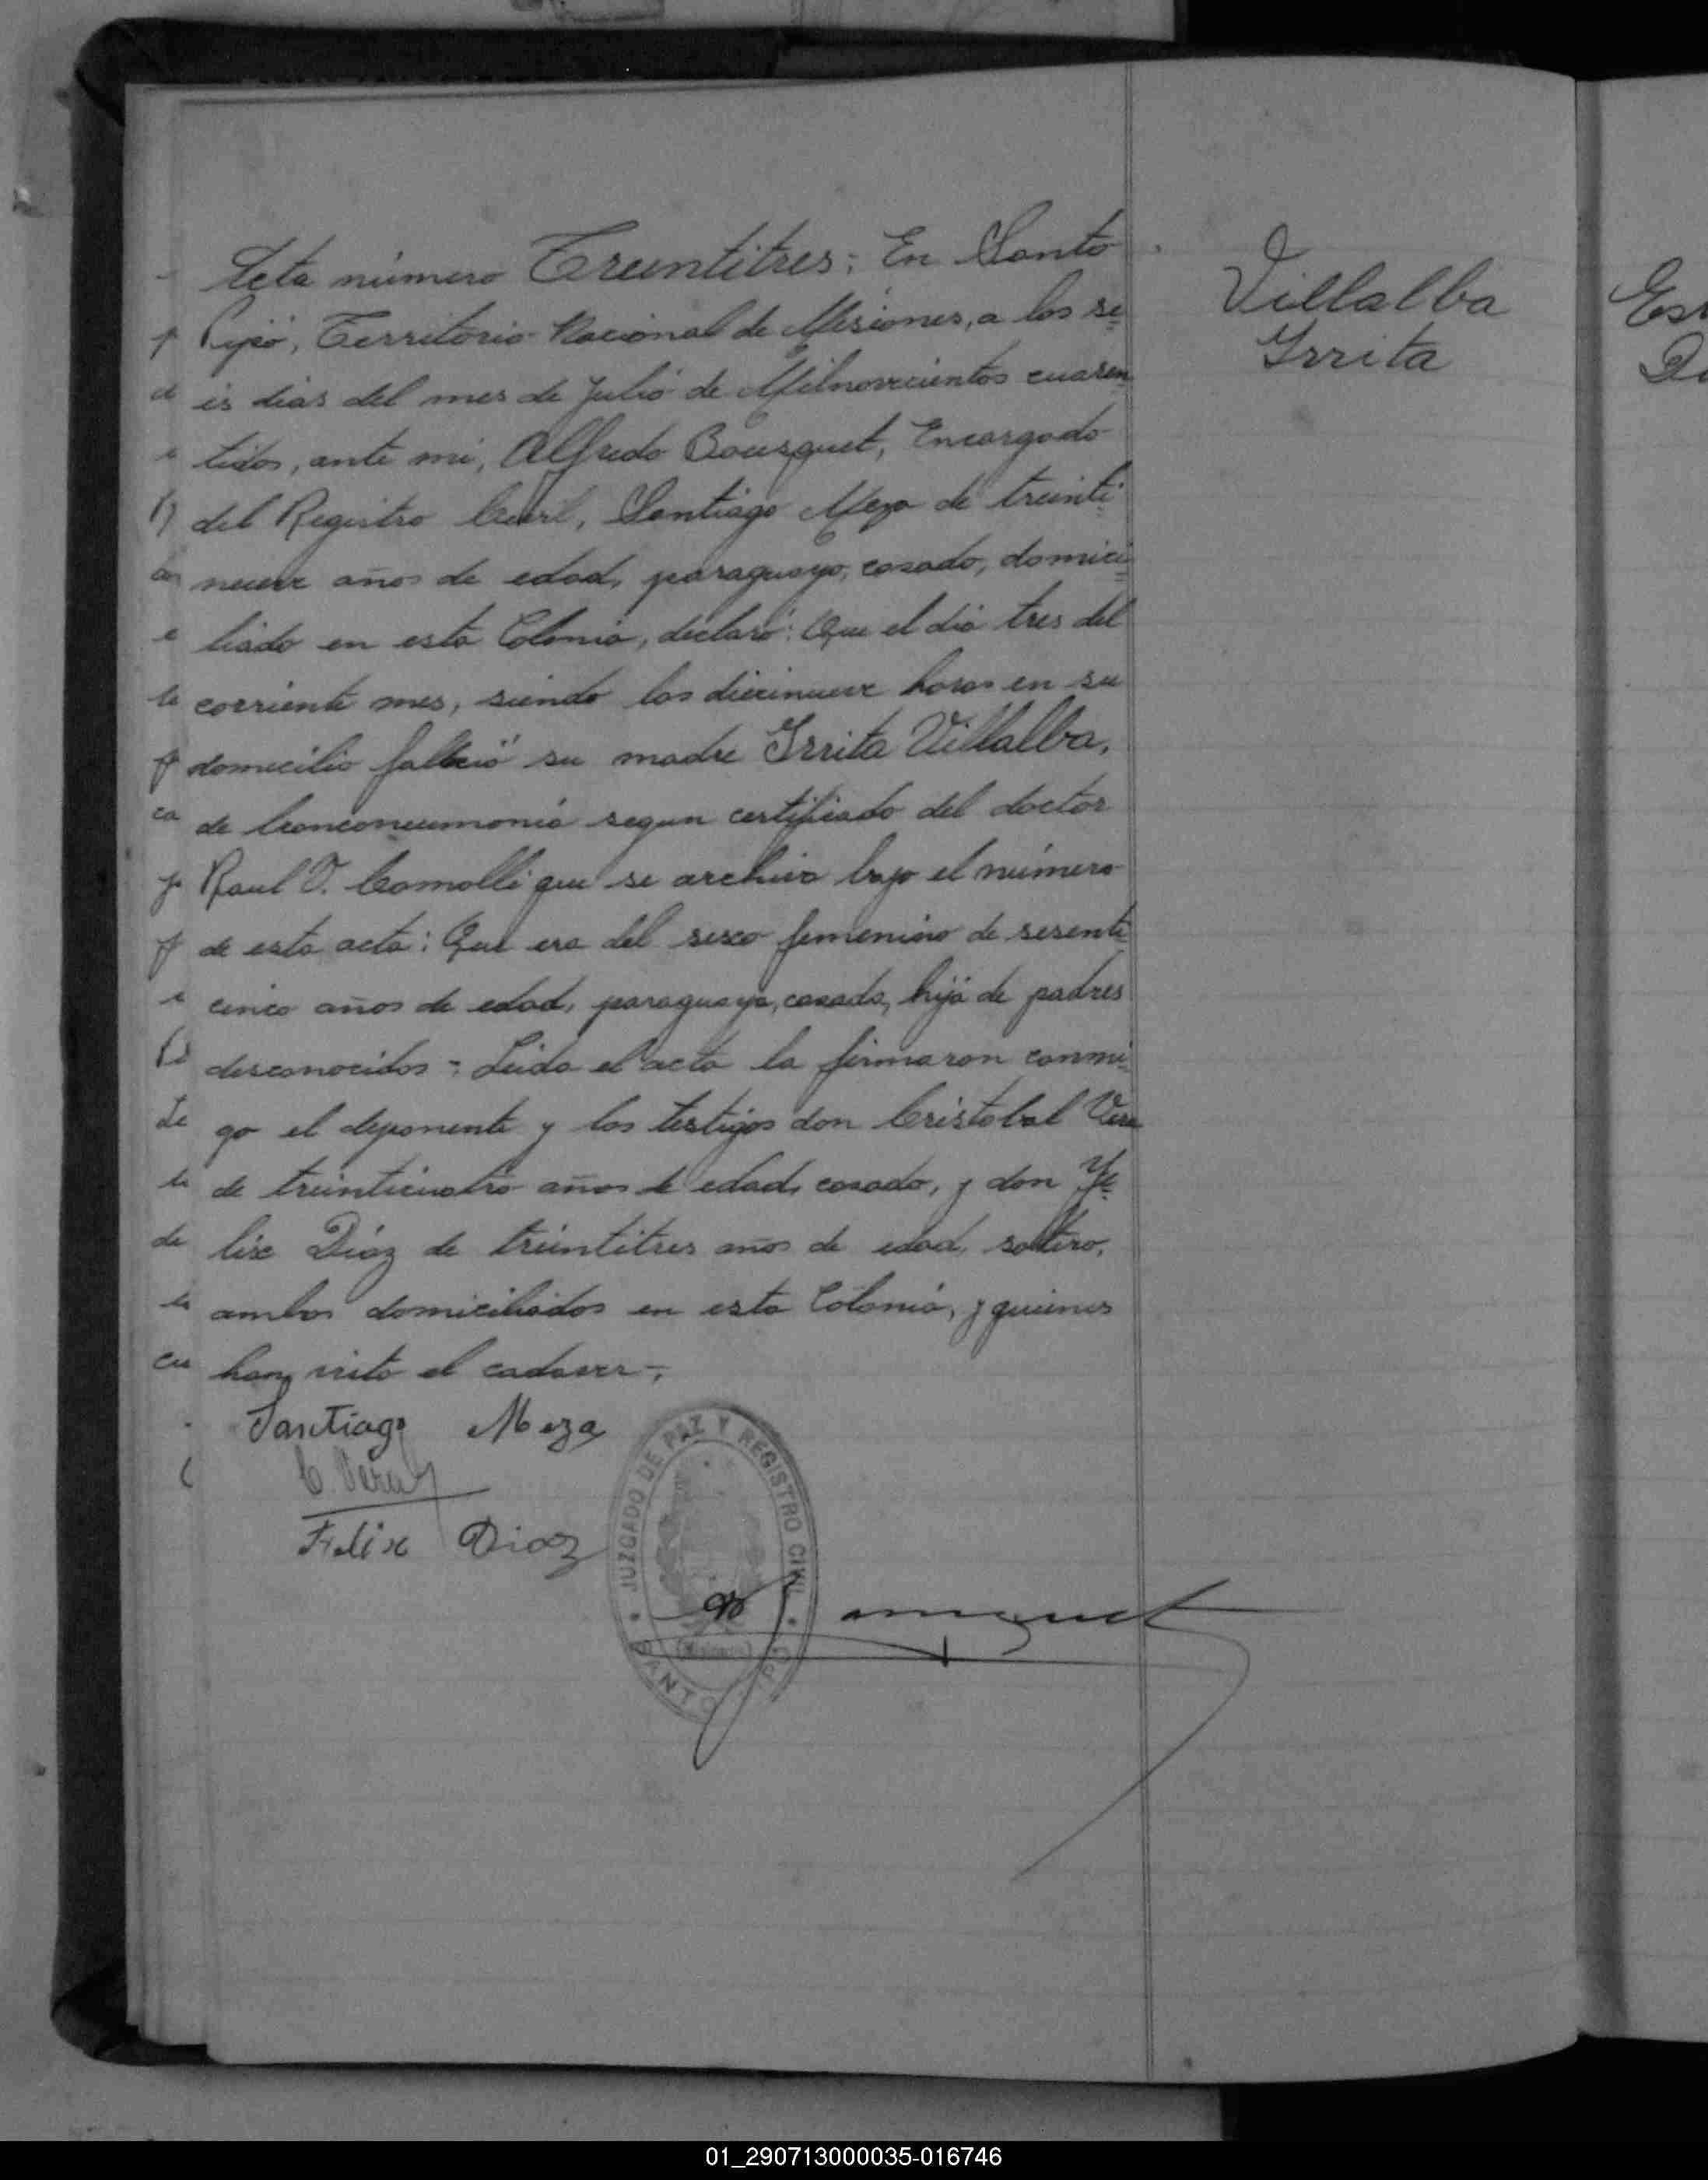 Acta número Treintitres: En Santo
Pipó, Territorio Nacional de Misiones, a los se
is dias del mes de Julio de Milnovecientos cuaren
tidos, ante mi, Alfredo Bousquet, Encargado
del Registro Civil, Santiago Meza de treinti
nueve años de edad, paraguayo, casado, domici
liado en esta Colonia, declaró: Que el dia tres del
corriente mes, siendo las diecinueve horas en su
domicilio falleció su madre Irrita Villalba,
de bronconeumonia segun certificado del doctor
Raul V. Comolli que se archiva bajo el número
de esta acta: Que era del sexo femenino de sesenti
cinco años de edad, paraguaya, casada, hija de padres
desconocidos: Leida el acta la firmaron conmi
go el deponente y los testigos don Cristobal Vera
de treinticuatro años de edad, casado, y don Fe
lix Diaz de treintitres años de edad, soltero,
ambos domiciliados en esta Colonia, y quienes
han visto el cadaver.-
Santiago Meza
C. Vera
Felix Diaz
JUZGADO DE PAZ Y REGISTRO CIVIL
SANTO PIPO
(Misiones)
Villalba
Irrita
01_290713000035-016746